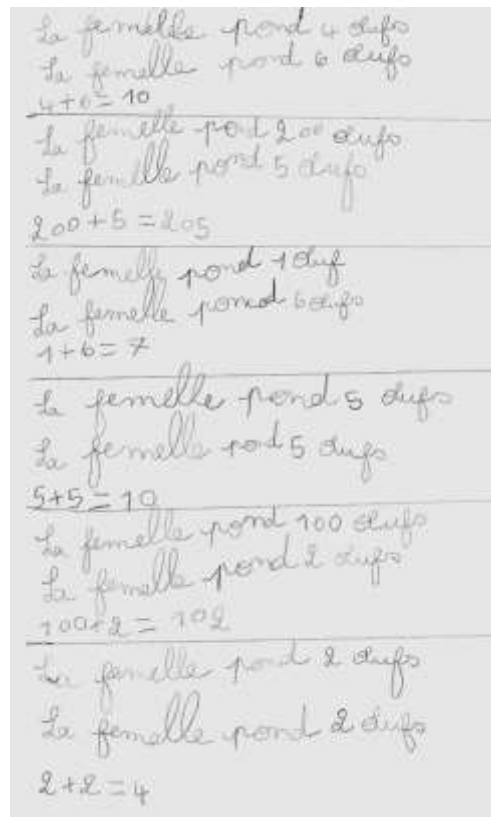 La femelle pond 4 œufs
La femelle pond 6 œufs
4+6=10
La femelle pond 200 œufs
La femelle pond 5 œufs
200+5=205
La femelle pond 1 œuf
La femelle pond 6 œufs
1+6=7
La femelle pond 5 œufs
La femelle pond 5 œufs
5+5=10
La femelle pond 100 œufs
La femelle pond 2 œufs
100+2=102
La femelle pond 2 œufs
La femelle pond 2 œufs
2+2=4